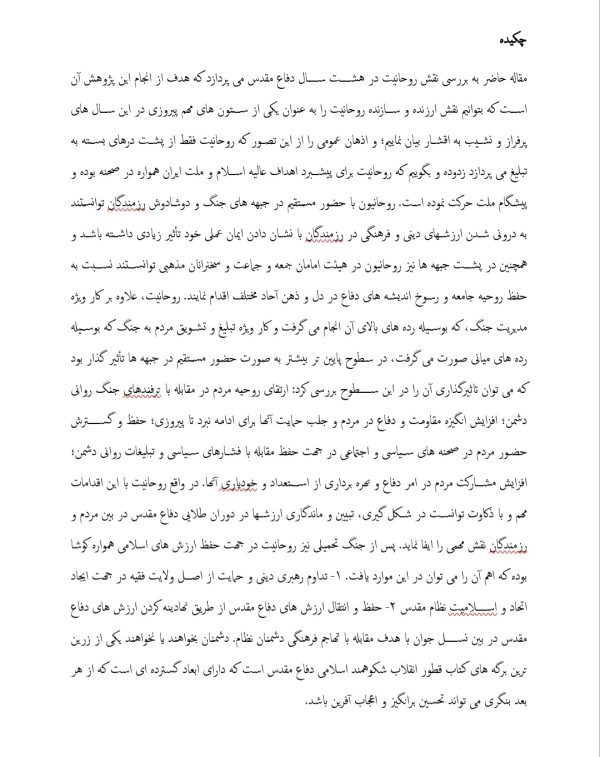 چکیده
مقاله حاضر به بررسی نقش روحانیت در هشت سال دفاع مقدس می پردازد که هدف از انجام این پژوهش آن
است که بتوانیم نقش ارزنده و سازنده روحانیت را به عنوان یکی از ستون های مهم پیروزی در این سال های
پرفراز و نشیب به اقشار بیان نماییم؛ و اذهان عمومی را از این تصور که روحانیت فقط از پشت درهای بسته به
تبلیغ می پردازد زدوده و بگوییم که روحانیت برای پیشبرد اهداف عالیه اسلام و ملت ایران همواره در صحنه بوده و
پیشگام ملت حرکت نموده است. روحانیون با حضور مستقیم در جبهه های جنگ و دوشادوش رزمندگان توانستند
به درونی شدن ارزشهای دینی و فرهنگی در رزمندگان با نشان دادن ایمان عملی خود تأثیر زیادی داشته باشد و
همچنین در پشت جبهه ها نیز روحانیون در هیئت امامان جمعه و جماعت و سخنرانان مذهبی توانستند نسبت به
حفظ روحیه جامعه و رسوخ اندیشه های دفاع در دل و ذهن آحاد مختلف اقدام نمایند. روحانیت، علاوه بر کار ویژه
مدیریت جنگ، که بوسیله رده های بالای آن انجام می گرفت و کار ویژه تبلیغ و تشویق مردم به جنگ که بوسیله
رده های میانی صورت می گرفت، در سطوح پایین تر بیشتر به صورت حضور مستقیم در جبهه ها تأثیر گذار بود
که می توان تاثیرگذاری آن را در این سطوح بررسی کرد: ارتقای روحیه مردم در مقابله با ترفندهای جنگ روانی
دشمن؛ افزایش انگیزه مقاومت و دفاع در مردم و جلب حمایت آنها برای ادامه نبرد تا پیروزی؛ حفظ و گسترش
حضور مردم در صحنه های سیاسی و اجتماعی در جهت حفظ مقابله با فشارهای سیاسی و تبلیغات روانی دشمن؛
افزایش مشارکت مردم در امر دفاع و بهره برداری از استعداد و خودیاری آنها. در واقع روحانیت با این اقدامات
مهم و با ذکاوت توانست در شکل گیری، تبیین و ماندگاری ارزشها در دوران طلایی دفاع مقدس در بین مردم و
رزمندگان نقش مهمی را ایفا نماید. پس از جنگ تحمیلی نیز روحانیت در جهت حفظ ارزش های اسلامی همواره کوشا
بوده که اهم آن را می توان در این موارد یافت. ۱- تداوم رهبری دینی و حمایت از اصل ولایت فقیه در جهت ایجاد
اتحاد و اسلامیت نظام مقدس ۲- حفظ و انتقال ارزش های دفاع مقدس از طریق نهادینه کردن ارزش های دفاع
مقدس در بین نسل جوان با هدف مقابله با تهاجم فرهنگی دشمنان نظام. دشمنان بخواهند یا نخواهند یکی از زرین
ترین برگه های کتاب قطور انقلاب شکوهمند اسلامی دفاع مقدس است که دارای ابعاد گسترده ای است که از هر
بعد بنگری می تواند تحسین برانگیز و اعجاب آفرین باشد.